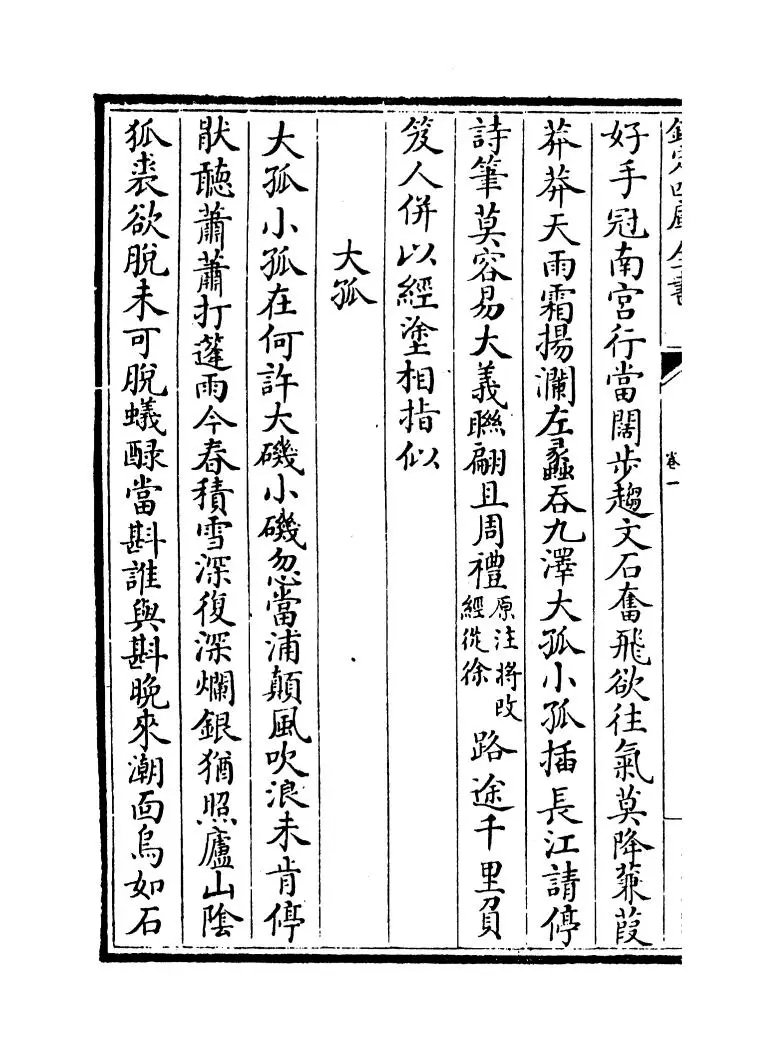 欽定四庫全書
卷一
好手冠南宮行當闊步趨文石奮飛欲往氣莫降蒹葭
莽莽天雨霜揚瀾左蠡吞九澤大孤小孤插長江請停
詩筆莫容易大義聯翩且周禮原注將改經從徐路途千里負
笈人併以經塗相指似
大孤
大孤小孤在何許大磯小磯忽當浦顛風吹浪未肯停
猒聽蕭蕭打蓬雨今春積雪深復深爛銀猶照廬山陰
狐裘欲脫未可脫蟻醁當斟誰與斟晚來潮面烏如石